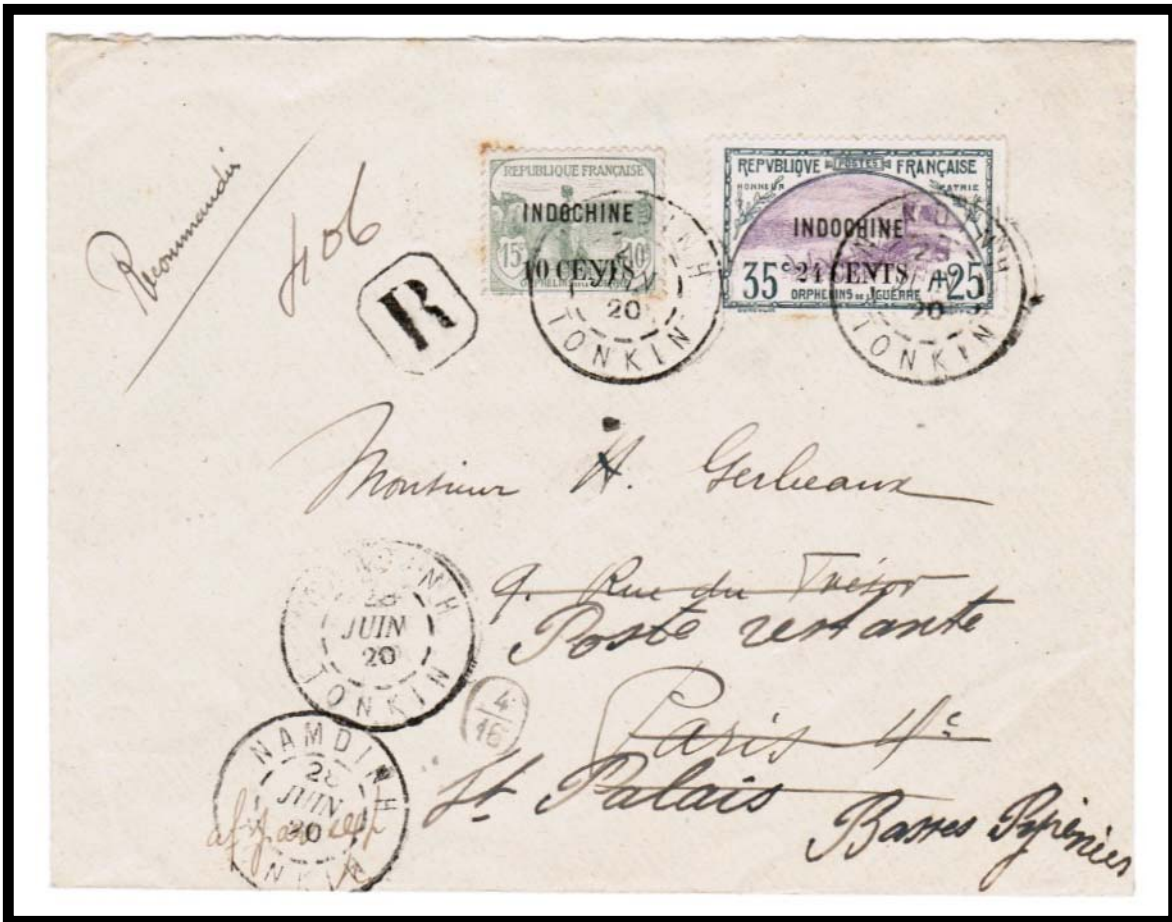 Recommandée
406
R
REPUBLIQUE FRANÇAISE
INDOCHINE
15c 10c
10 CENTS
REPVBLIQVE POSTES FRANÇAISE
HONNEUR PATRIE
INDOCHINE
35c 24 CENTS +25c
ORPHELINS DE LA GUERRE
20
TONKIN
20
TONKIN
Monsieur H. Gerbeaux
9. Rue du Trésor
Poste restante
Paris 4e
St Palais
Basses Pyrénées
28
JUIN
20
TONKIN
4
16
NAMDINH
28
JUIN
20